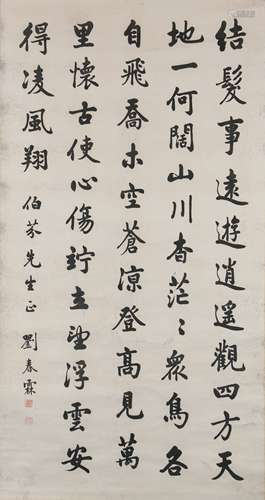 結髮事遠遊逍遥觀四方天
地一何闊山川杳茫茫衆鳥各
自飛喬木空蒼涼登高見萬
里懷古使心傷竚立望浮雲安
得凌風翔 伯棻先生正 劉春霖